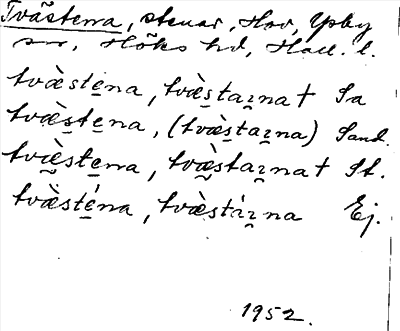 Tvästena, stenar, Hov, Ypby
sn, Höks hd, Hall. l.
tvæ̀ste̱na, tvæ̀s̱taṟna † Sa
tvæ̀s̱te̱na, (tvæ̀s̱taṟna) Sand.
tvæ̀ste̱na, tvæ̀staṟna † St.
tvæ̀sté̱na, tvæ̀stáṟna Ej.
1952.